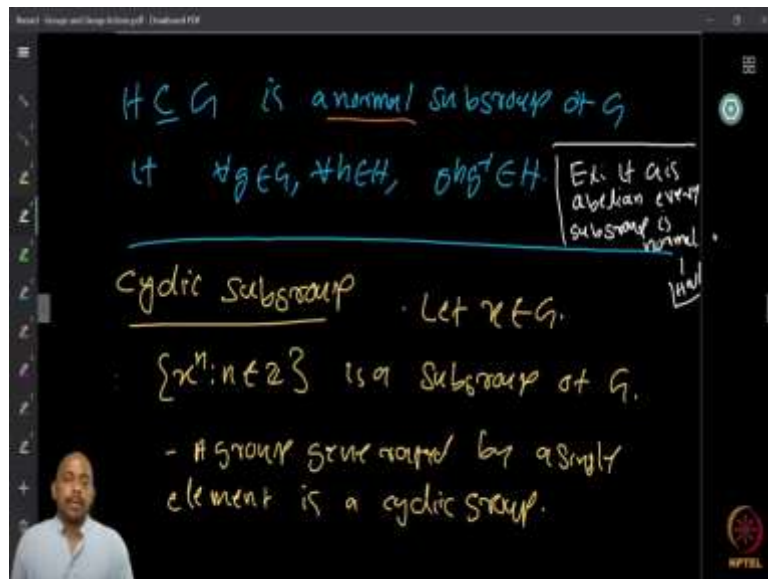 H ⊆ G is a normal subgroup of G
if ∀g∈G, ∀h∈H, ghg⁻¹∈H.
Ex: if G is
abelian every
subgroup is
normal
Cyclic subgroup . Let x∈G.
{xⁿ: n∈Z} is a subgroup of G.
- A group generated by a single
element is a cyclic group.
NPTEL